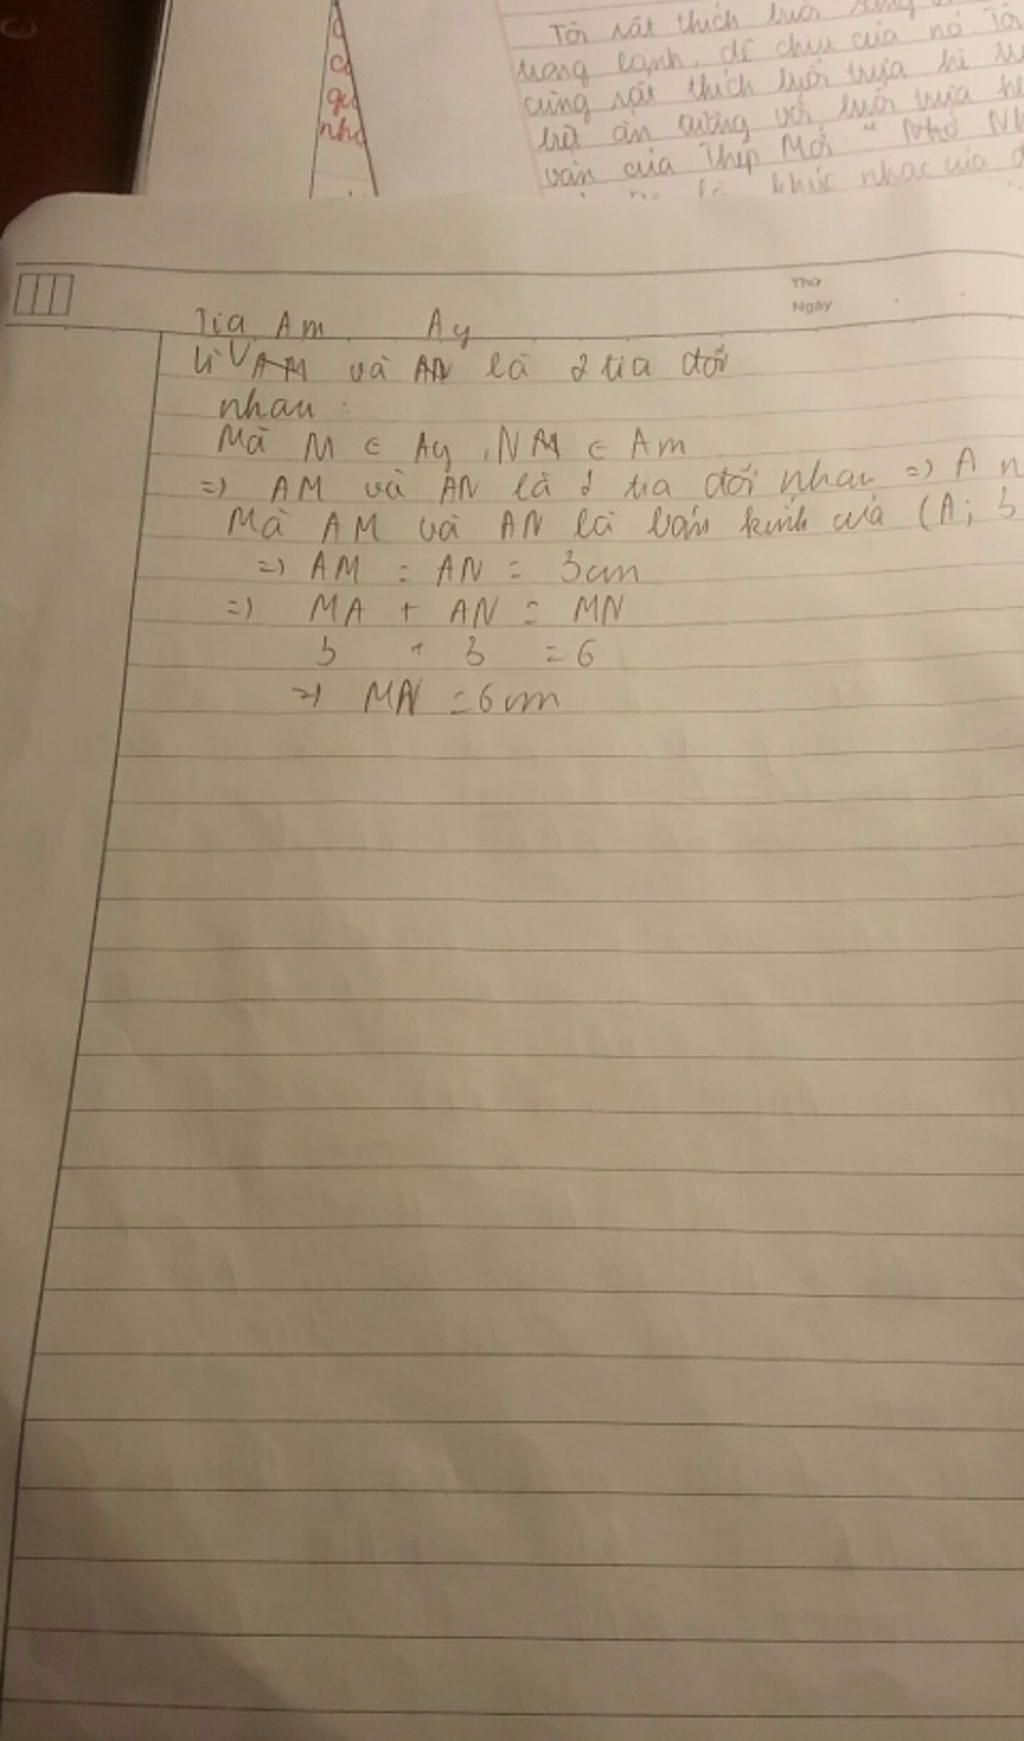 Tôi rất thích
trong lành, dễ chịu của nó. Tôi
cũng rất thích buổi trưa hè
ấn tượng với buổi trưa
văn của Thép Mới "Nhớ
khúc nhạc của
nhạ
Thứ
Ngày
Tia Am Ay
Vì AM và AN là 2 tia đối
nhau
Mà M ∈ Ay, N ∈ Am
=> AM và AN là 2 tia đối nhau => A n
Mà AM và AN là bán kính của (A; 3
=> AM = AN = 3cm
=> MA + AN = MN
3 + 3 = 6
=> MN = 6cm